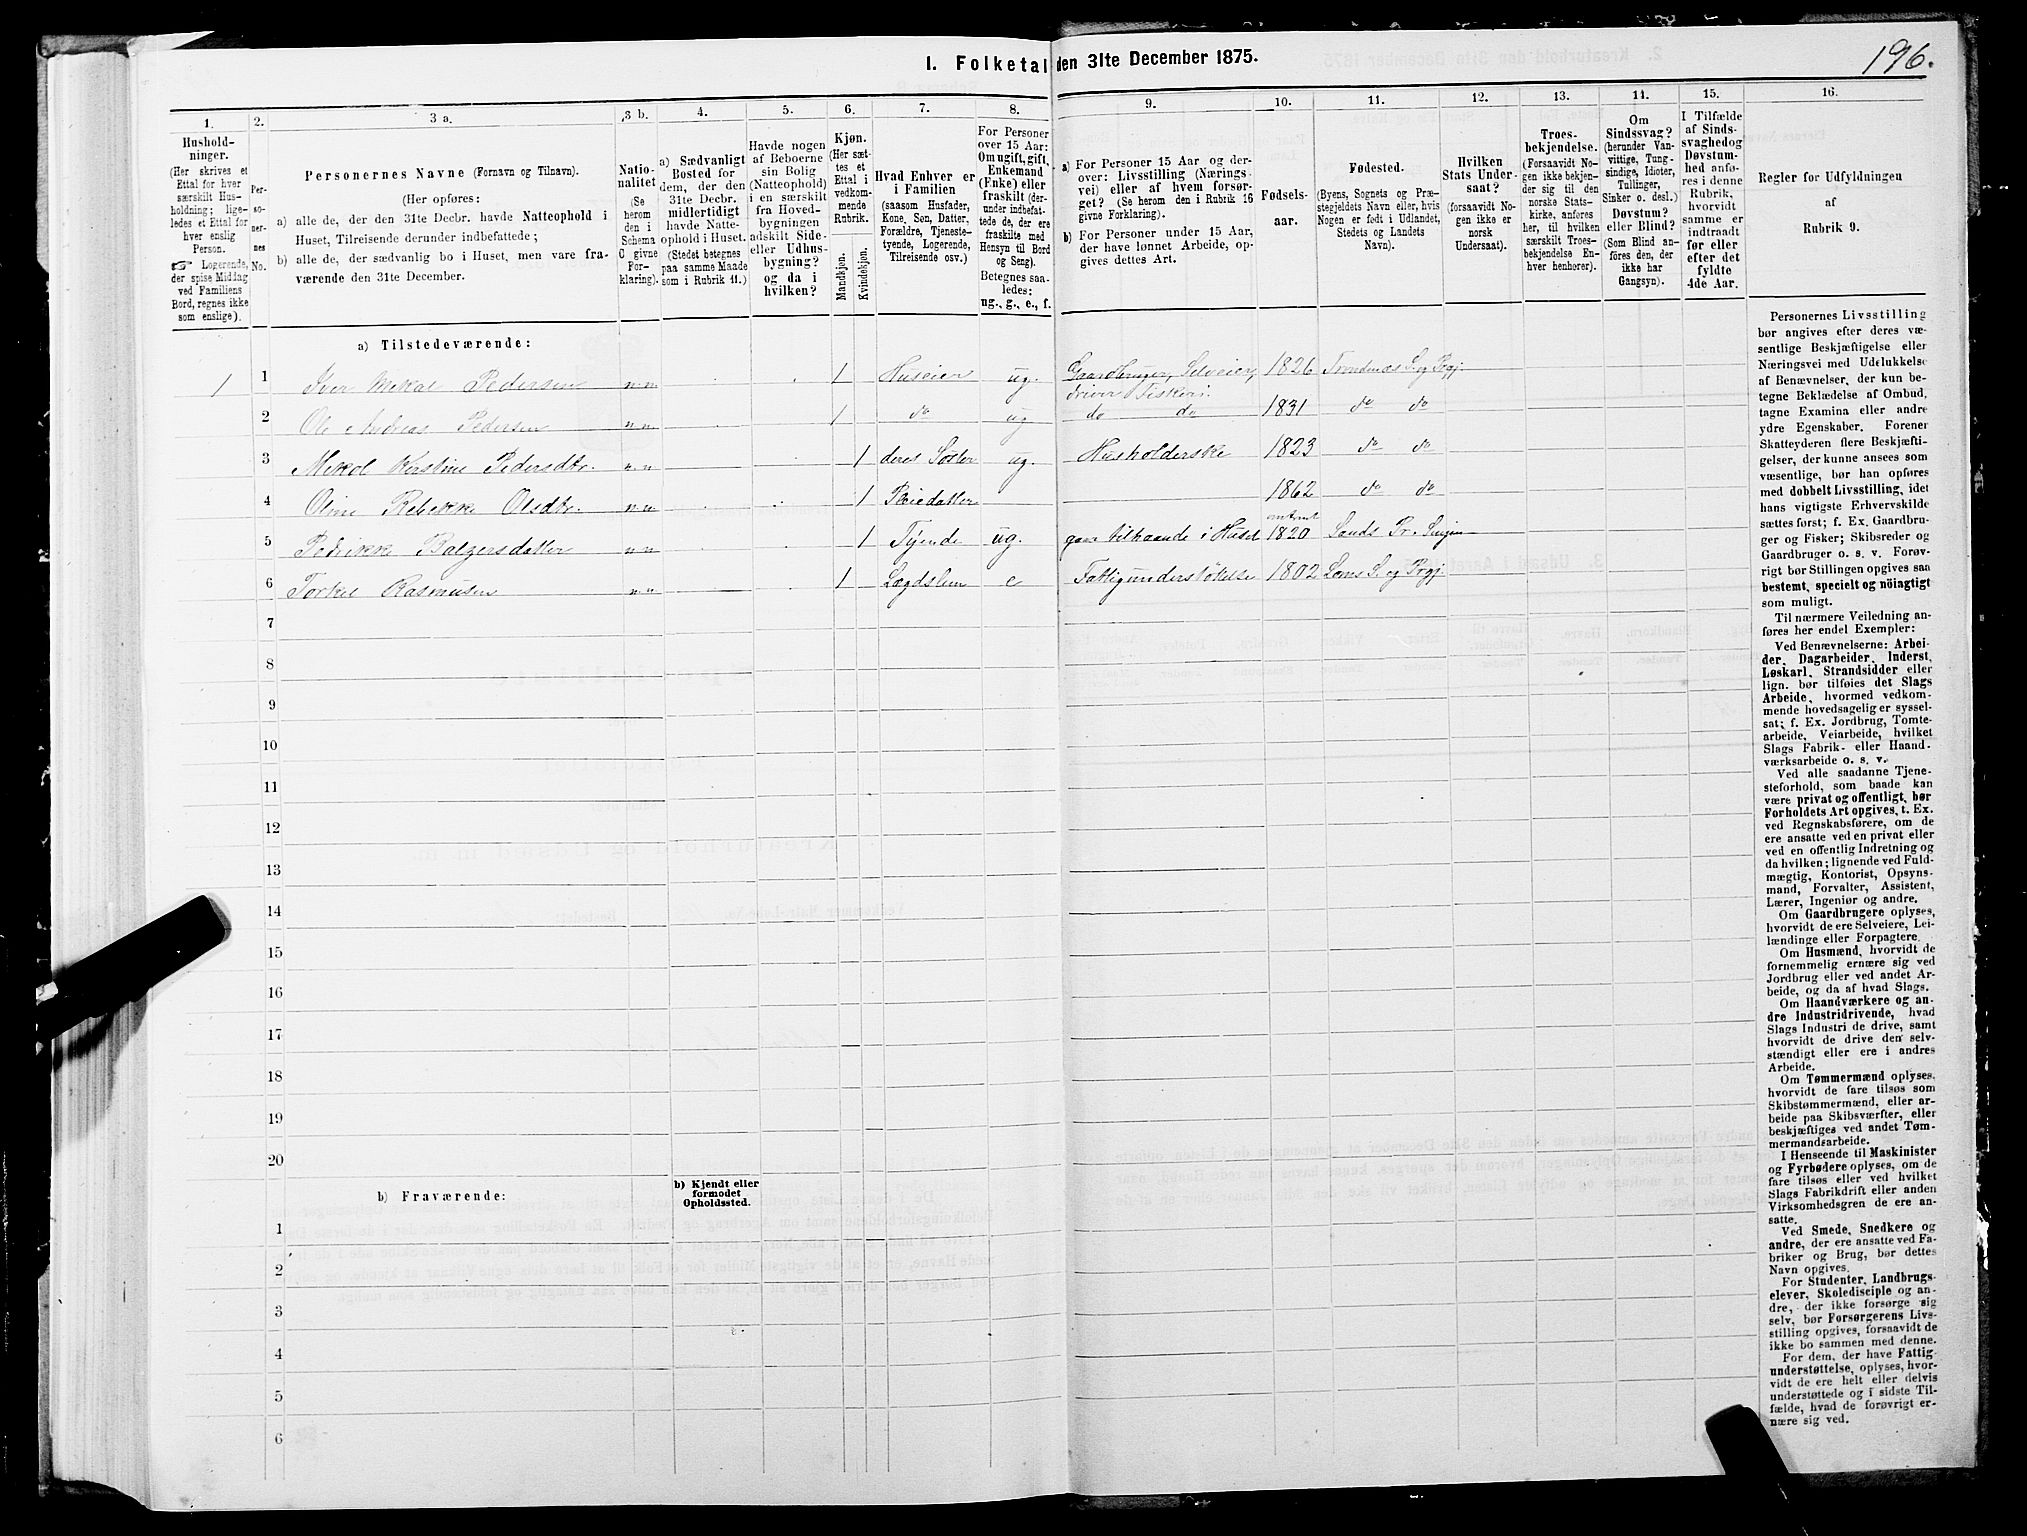 196.
I. Folketal den 31te December 1875.
1.
2.
3 a.
3 b.
4.
5.
6.
7.
8.
9.
10.
11.
12.
13.
14.
15.
16.
Hushold-
ninger.
(Her skrives et
Ettal for hver
særskilt Hus-
holdning; lige-
ledes et Ettal for
hver enslig
Person.
☞ Logerende,
der spise Middag
ved Familiens
Bord, regnes ikke
som enslige).
Per-
so-
ner-
nes
No.
Personernes Navne (Fornavn og Tilnavn).
(Her opføres:
a) alle de, der den 31te Decbr. havde Natteophold i
Huset, Tilreisende derunder indbefattede;
b) alle de, der sædvanlig bo i Huset, men vare fra-
værende den 31te December.
Natio-
nalitet
(Se
herom
den i
Schema
C givne
For-
klaring).
a) Sædvanligt
Bosted for
dem, der den
31te Decbr.
midlertidigt
havde Natte-
ophold i Huset.
(Stedet betegnes
paa samme Maade
som i Rubrik 11.)
Havde nogen
af Beboerne
sin Bolig
(Natteophold)
i en særskilt
fra Hoved-
bygningen
adskilt Side-
eller Udhus-
bygning?
og da i
hvilken?
Kjøn.
(Her sæt-
tes et
Ettal i
vedkom-
mende
Rubrik.
Mandkjøn.
Kvindekjøn.
Hvad Enhver er
i Familien
(saasom Husfader,
Kone, Søn, Datter,
Forældre, Tjeneste-
tyende, Logerende,
Tilreisende osv.)
For Personer
over 15 Aar:
Om ugift, gift,
Enkemand
(Enke) eller
fraskilt (der-
under indbefat-
tede de, der ere
fraskilte med
Hensyn til Bord
og Seng).
Betegnes saa-
ledes:
ug., g., e., f.
a) For Personer 15 Aar og der-
over: Livsstilling (Nærings-
vei) eller af hvem forsør-
get? (Se herom den i Rubrik 16
givne Forklaring).
b) For Personer under 15 Aar,
der have lønnet Arbeide, op-
gives dettes Art.
Fødsels-
aar.
Fødested.
(Byens, Sognets og Præ-
stegjeldets Navn eller, hvis
Nogen er født i Udlandet,
Stedets og Landets
Navn).
Hvilken
Stats Under-
saat?
(forsaavidt No-
gen ikke er
norsk
Undersaat).
Troes-
bekjendelse.
(Forsaavidt No-
gen ikke bekjen-
der sig til den
norske Stats-
kirke, anføres
her, til hvilken
særskilt Troes-
bekjendelse En-
hver henhører).
Om
Sindssvag?
(herunder Van-
vittige, Tung-
sindige, Idioter,
Tullinger,
Sinker o. desl.)
Døvstum?
eller Blind?
(Som Blind an-
føres den, der
ikke har
Gangsyn).
I Tilfælde
af Sinds-
svaghed og
Døvstum-
hed anfø-
res i denne
Rubrik,
hvorvidt
samme er
indtraadt
før eller
efter det
fyldte
4de Aar.
Regler for Udfyldningen
af
Rubrik 9.
a) Tilstedeværende:
1 1 Iver Mikal Pedersen n.n 1 Huseier ug. Gaardbruger, Selveier, driver Fiskeri. 1826 Trondenæs S. og Prgj.
2 Ole Andreas Pedersen n.n 1 do ug do do 1831 do do
3 Mekol Kerstine Pedersdtr. n.n 1 deres Søster ug. Husholderske 1823 do do
4 Oline Rebekke Olsdtr. n.n 1 Pleiedatter 1862 do do
5 Balzersdatter n.n 1 Tyende ug. gaar tilhaande i Huset omtrent 1820 Sands Pr.
6 Torkel Rasmusen n.n 1 Lægdslem e Fattigunderstøttelse 1802 Loms S. og Prgj
7
8
9
10
11
12
13
14
15
16
17
18
19
20
b) Fraværende:
b) Kjendt eller
formodet
Opholdssted.
1
2
3
4
5
6
Personernes Livsstilling
bør angives efter deres væ-
sentlige Beskjæftigelse eller
Næringsvei med Udelukkelse
af Benævnelser, der kun be-
tegne Beklædelse af Ombud,
tagne Examina eller andre
ydre Egenskaber. Forener
Skatteyderen flere Beskjæfti-
gelser, der kunne ansees som
væsentlige, bør han opføres
med dobbelt Livsstilling, idet
hans vigtigste Erhvervskilde
sættes først; f. Ex. Gaardbru-
ger og Fisker; Skibsreder og
Gaardbruger o. s. v. Forøv-
rigt bør Stillingen opgives saa
bestemt, specielt og nöiagtigt
som muligt.
Til nærmere Veiledning an-
føres her endel Exempler:
Ved Benævnelserne: Arbei-
der, Dagarbeider, Inderst,
Løskarl, Strandsidder eller
lign. bør tilføies det Slags
Arbeide, hvormed vedkom-
mende hovedsagelig er syssel-
sat; f. Ex. Jordbrug, Tomte-
arbeide, Veiarbeide, hvilket
Slags Fabrik- eller Haand-
værksarbeide o. s. v.
Ved alle saadanne Tjene-
steforhold, som baade kan
være privat og offentligt, bør
Forholdets Art opgives, t. Ex.
ved Regnskabsførere, om de
ere ansatte ved en privat eller
ved en offentlig Indretning og
da hvilken; lignende ved Fuld-
mægtig, Kontorist, Opsyns-
mand, Forvalter, Assistent,
Lærer, Ingeniør og andre.
Om Gaardbrugere oplyses,
hvorvidt de ere Selveiere, Lei-
lændinge eller Forpagtere.
Om Husmænd, hvorvidt de
fornemmelig ernære sig ved
Jordbrug eller ved andet Ar-
beide, og da af hvad Slags.
Om Haandværkere og an-
dre Industridrivende, hvad
Slags Industri de drive, samt
hvorvidt de drive den selv-
stændigt eller ere i andres
Arbeide.
Om Tømmermænd oplyses,
hvorvidt de fare tilsøs som
Skibstømmermænd, eller ar-
beide paa Skibsværfter, eller
beskjæftiges ved andet Tøm-
mermandsarbeide.
I Henseende til Maskinister
og Fyrbødere oplyses, om de
fare tilsøs eller ved hvilket
Slags Fabrikdrift eller anden
Virksomhedsgren de ere an-
satte.
Ved Smede, Snedkere og
andre, der ere ansatte ved Fa-
briker og Brug, bør dettes
Navn opgives.
For Studenter, Landbrugs-
elever, Skoledisciple og an-
dre, der ikke forsørge sig
selv, bør Forsørgerens Livs-
stilling opgives, forsaavidt de
ikke bo sammen med denne.
For dem, der have Fattig-
understøttelse, oplyses, hvor-
vidt de ere helt eller delvis
understøttede og i sidste Til-
fælde, hvad de forøvrigt er-
nære sig ved.